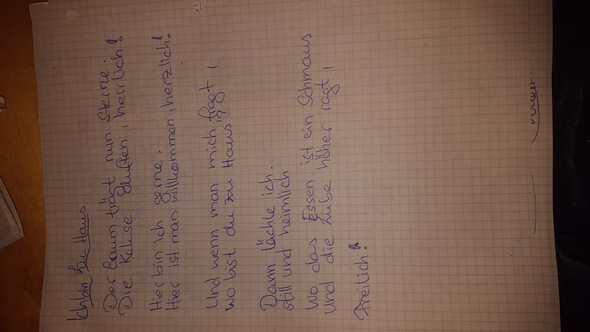 Ich bin zu Haus
Der Baum trägt nun Sterne.
Die Kekse duften, herrlich!
Hier bin ich gerne.
Hier ist man willkommen, herzlich!
Und wenn man mich fragt,
wo bist du zu Haus?
Dann lächle ich.
still und heimlich
Wo das Essen ist ein Schmaus
Und die Liebe höher ragt,
Freilich!